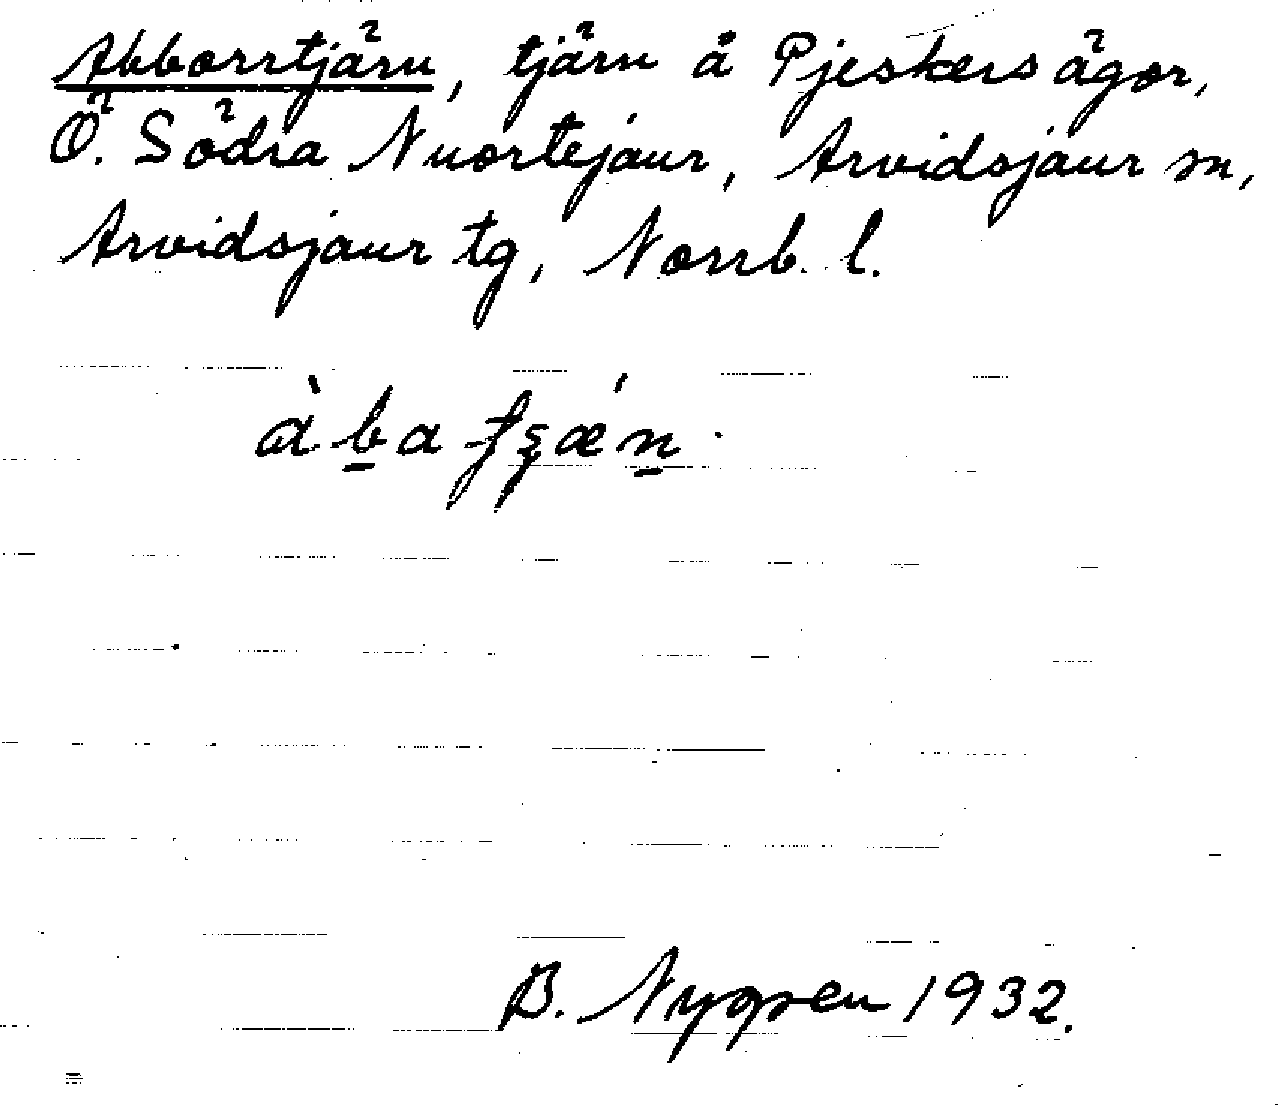 Abborrtjärn, tjärn å Pjeskers ägor,
Ö. Södra Nuortejaur, Arvidsjaur sn,
Arvidsjaur tg, Norrb. l.
B. Nygren 1932.